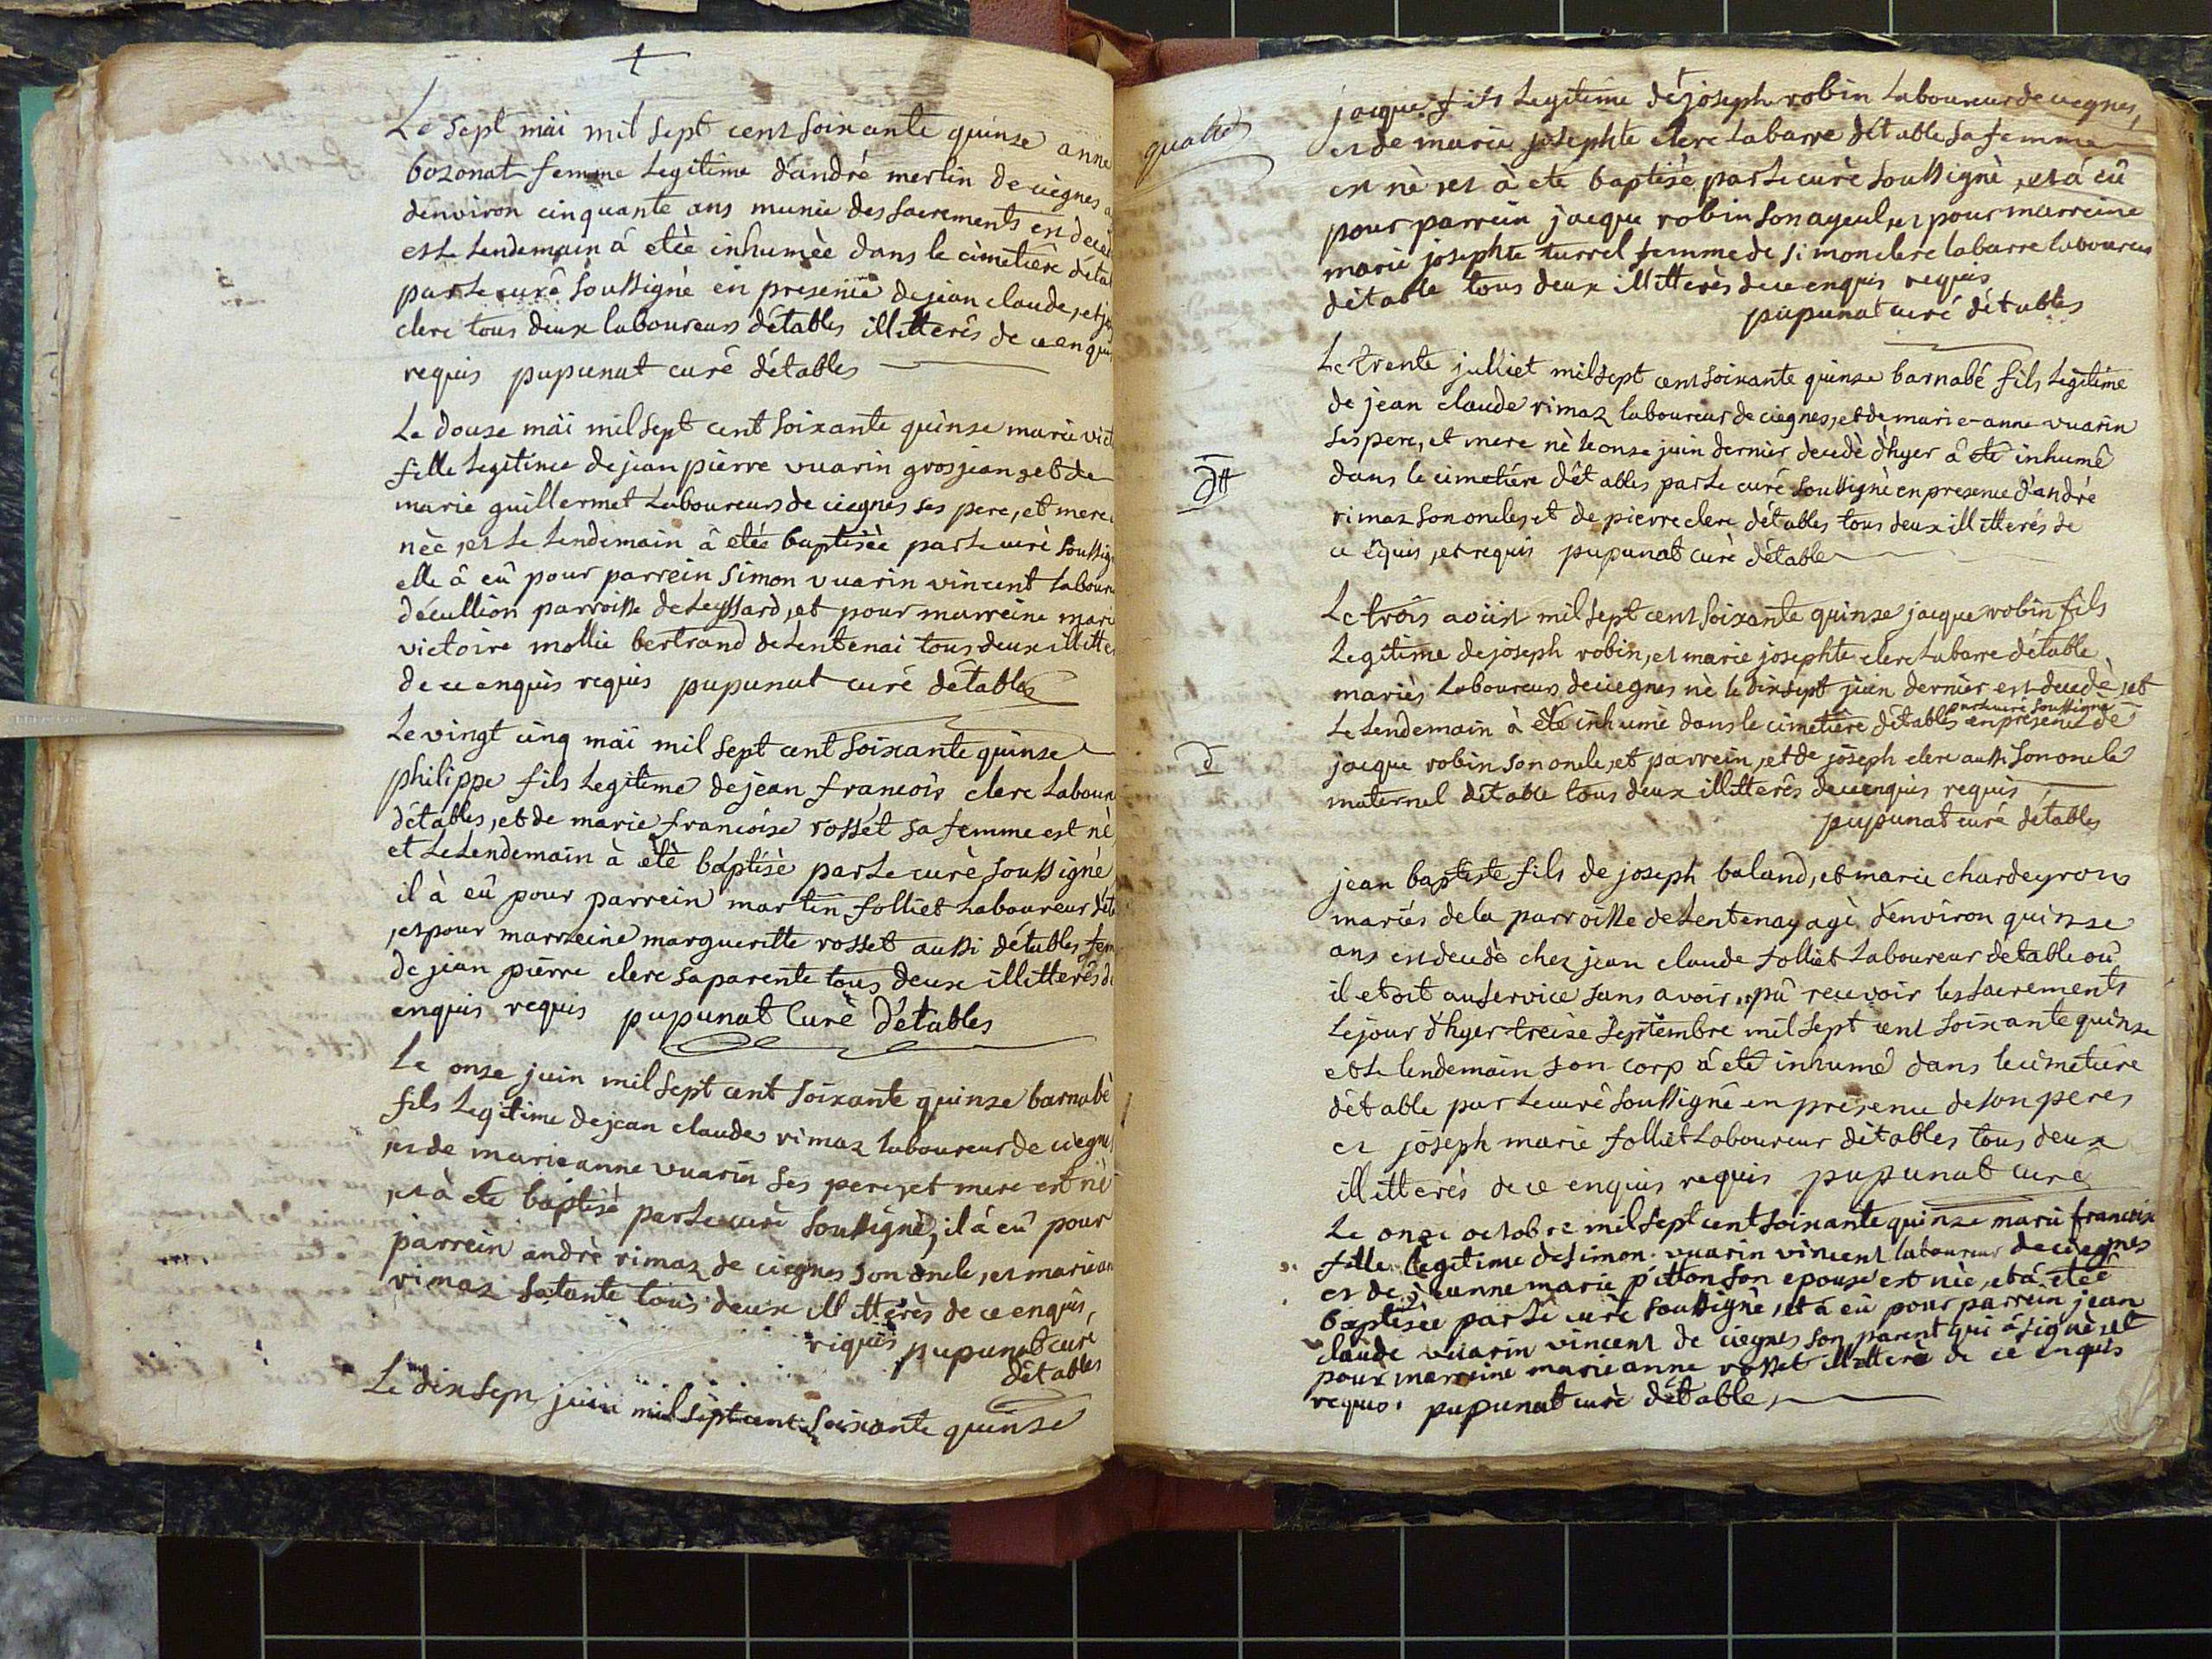 Le sept mäi mil sept cent soixante quinse anne
bozonat femme legitime d'andré merlin de ciegnes
d'environ cinquante ans munie des sacrements en
est le lendemain á etèe inhumèe dans le cimetiêre
par le curé soussignè en presence de jean claude, et
clerc tous deux laboureurs d'étables illitterés de ce
requis pupunat curé d'étables
Le douse mäi mil sept cent soixante quinse marie
fille legitime de jean pierre vuarin grosjean et de
marie guillermet laboureurs de ciegnes ses pere, et mere
nèe, et le lendemain â etèe baptisèe par le curè
elle â eû pour parrein simon vuarin vincent
d'ecullion parroisse de leyssard, et pour marreine
victoire mollie bertrand de lentenai tous deux
de ce enquis requis pupunat curé d'étables
Le vingt cinq mäi mil sept cent soixante quinse
philippe fils legitime de jean francois clerc
d'étables, et de marie francoise rosset sa femme est nè
et le lendemain à etè baptisè par le curè soussigné
il à eû pour parrein martin folliet laboureur
, et pour marreine margueritte rosset aussi d'étables
de jean pierre clerc sa parente tous deux illitterés
enquis requis pupunat curè d'étables
Le onse juin mil sept cent soixante quinse barnabè
fils legitime de jean claude rimaz laboureur de
, et de marie anne vuarin ses pere, et mere est nè
, et à ete baptisé par le curè soussignè, il á eû pour
parrein andrè rimaz de ciegnes son oncle, et
rimaz sa tante tous deux illitterès de ce enquis,
requis pupunat curé
d'étables
Le dix sept juin mil sept cent soixante quinse
jacque fils legitime de joseph robin laboureur de ciegnes,
et de marie josephte clerc labarre d'étable sa femme
est nè, et à ete baptisè par le curè soussignè, et á eû
pour parrein jacque robin son ayeul, et pour marreine
marie josephte turrel femme de simon clerc labarre
d'étable tous deux illitterès de ce enquis requis
pupunat curé d'étables
Le trente julliet mil sept cent soixante quinse barnabé fils legitime
de jean claude rimaz laboureur de ciegnes, et de marie-anne vuarin
ses pere, et mere nè le onse juin dernier decedè d'hyer â ete inhumê
dans le cimetiére d'étables par le curé soussignè en presence d'andrè
rimaz son oncle, et de pierre clerc d'étables tous deux illitterés de
ce êquis, et requis pupunat curè d'étable
Le trois aoüst mil sept cent soixante quinse jacque robin fils
legitime de joseph robin, et marie josephte clerc labarre d'étable
mariès laboureurs de ciegnes nè le dix sept juin dernier est decedè, et
par le curè soussignè
le lendemain à ête inhumè dans le cimetiêre d'étables en presence de
jacque robin son oncle, et parrein, et de joseph clerc aussi son oncle
maternel d'étable tous deux illitterês de ce enquis requis
pupunat curé d'étables
jean baptiste fils de joseph baland, et marie chardeyron
mariés de la parroisse de lentenay agè d'environ quinse
ans est decedè chez jean claude folliet laboureur d'etable où
il etoit au service sans avoir pû recevoir les sacrements
le jour d'hyer treise septembre mil sept cent soixante quinse
et le lendemain son corp á eté inhumé dans le cimetiere
d'étable par le curè soussignê en presence de son pere
et joseph marie folliet laboureur d'étables tous deux
illitterès de ce enquis requis pupunat curé
Le onze octobre mil sept cent soixante quinse marie francoise
fille legitime de simon vuarin vincent laboureur de ciegnes
et de jeanne marie pitton son epouse est nèe, et á etèe
baptisèe par le curè soussignè, et á eû pour parrein jean
claude vuarin vincent de ciegnes son parent qui à signè, et
pour marreine marie anne rosset illitterè de ce enquis
requis. pupunat curè d'étable